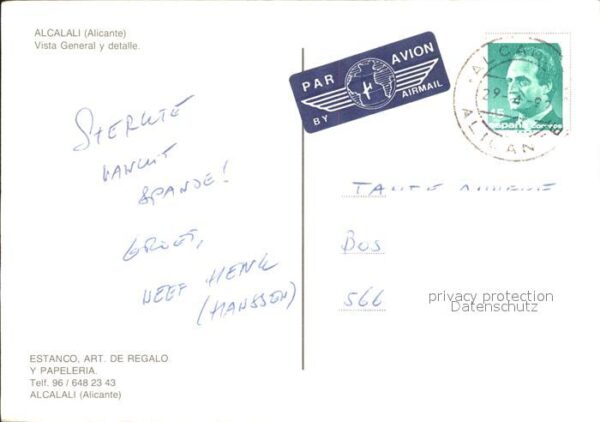 ALCALALI (Alicante)
Vista General y detalle.
PAR AVION
BY AIRMAIL
15
españa correos
STERKTE
VANUIT
SPANJE!
GROET,
NEEF HENK
(HANSSEN)
TANTE
BUS
566
privacy protection
Datenschutz
ESTANCO, ART. DE REGALO
Y PAPELERIA.
Telf. 96 / 648 23 43
ALCALALI (Alicante)